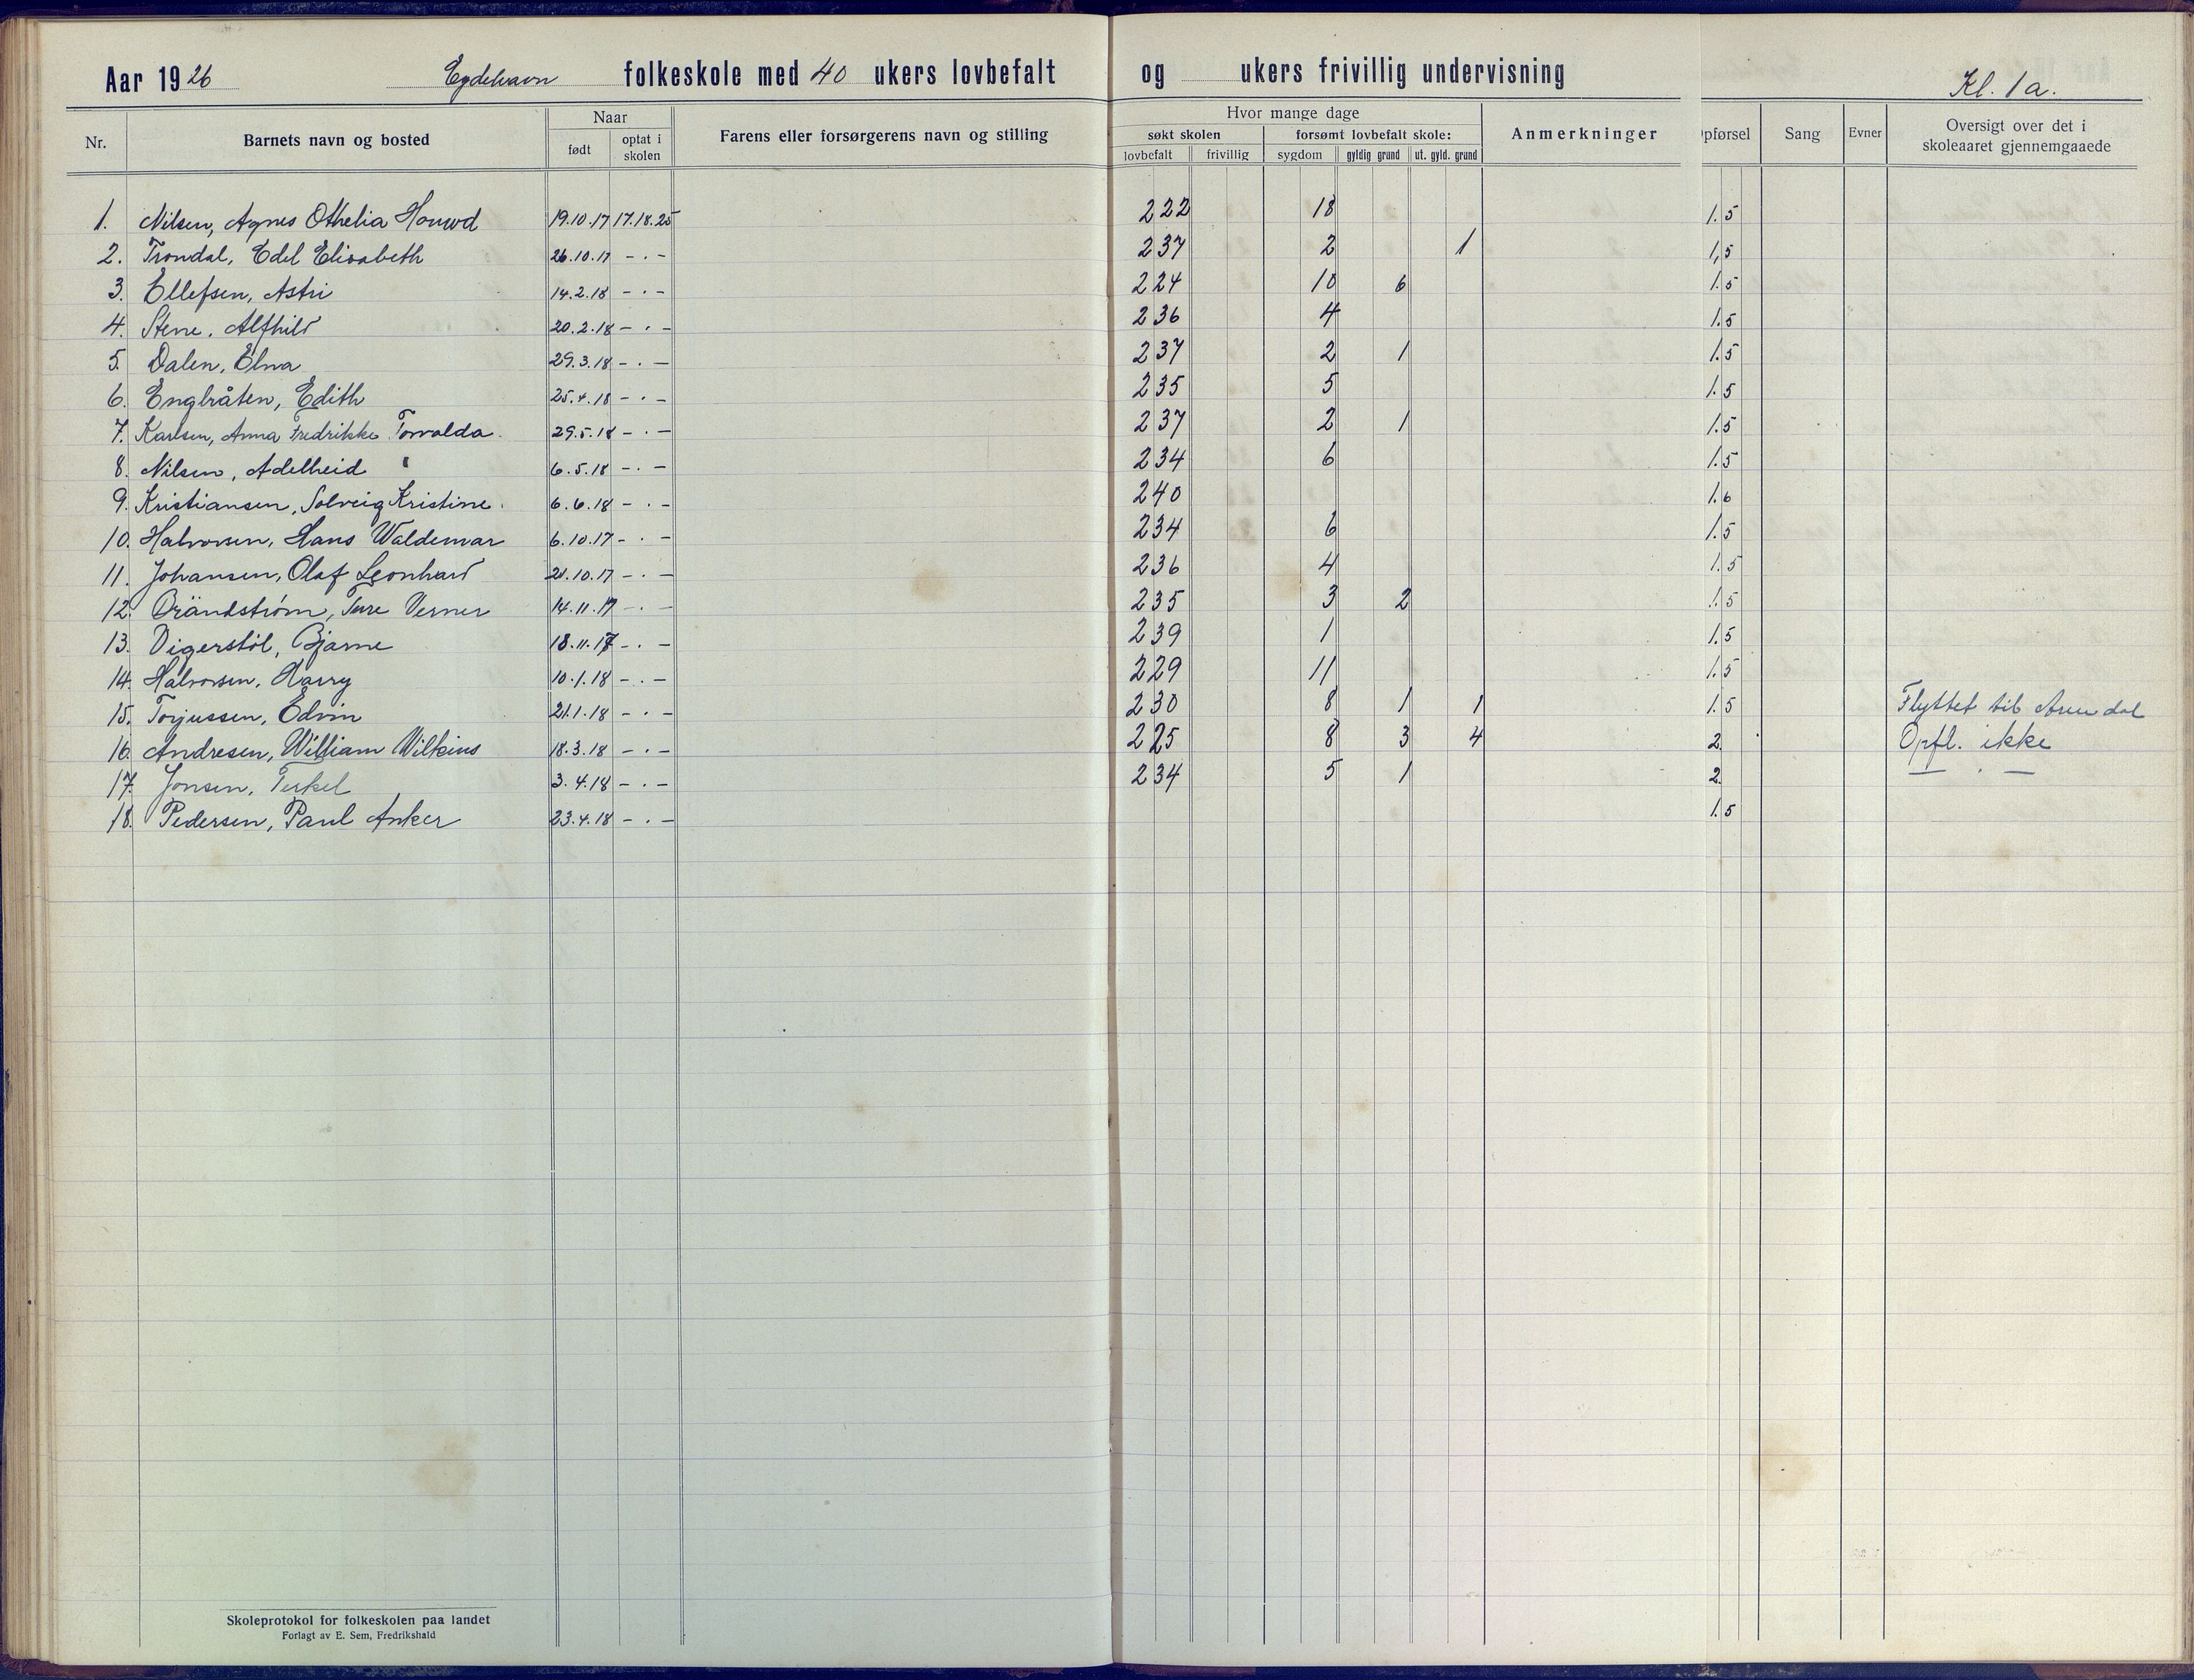 Aar 1926 Eydehavn folkeskole med 40 ukers lovbefalt og ukers frivillig undervisning Kl. 1a.
Nr. Barnets navn og bosted Naar født optat i skolen Farens eller forsørgerens navn og stilling Hvor mange dage søkt skolen lovbefalt frivillig forsømt lovbefalt skole: sygdom gyldig grund ut. gyld. grund Anmerkninger pførsel Sang Evner Oversigt over det i skoleaaret gjennemgaaede
1. Nilsen, Agnes Othelia 19.10.17 17.18.25 222 18 1.5
2. Trondal, Edel Elisabeth 26.10.17 - . - 237 2 1 1,5
3. Ellefsen, Astri 14.2.18 - . - 224 10 6 1.5
4. Stene, Alfhild 20.2.18 - . - 236 4 1.5
5. Dalen, Elna 29.3.18 - . - 237 2 1 1.5
6. Englråten, Edith 25.4.18 - . - 235 5 1.5
7. Karlsen, Anna Fredrikke Torvalda. 29.5.18 - . - 237 2 1 1.5
8. Nilsen, Adelheid 6.5.18 - . - 234 6 1.5
9. Kristiansen, Solveig Kristine. 6.6.18 - . - 240 1.6
10. Halvorsen, Hans Waldemar 6.10.17 - . - 234 6 1.5
11. Johansen, Olaf Leonhard 21.10.17 - . - 236 4 1.5
12. Brändstrøm, Ture Verner 14.11.17 - . - 235 3 2 1.5
13. Digerstöl, Bjarne 18.11.17 - . - 239 1 1.5
14. Halvorsen, Harry 10.1.18 - . - 229 11 1.5
15. Torjussen, Edvin 21.1.18 - . - 230 8 1 1 1.5 Flyttet til Arendal
16. Andresen, William Wilkins 18.3.18 - . - 225 8 3 4 2. Opfl. ikke
17. Jonsen, Terkel 3.4.18 - . - 234 5 1 2. — . —
18. Pedersen, Paul Anker 23.4.18 - . - 1.5
Skoleprotokol for folkeskolen paa landet
Forlagt av E. Sem, Fredrikshald